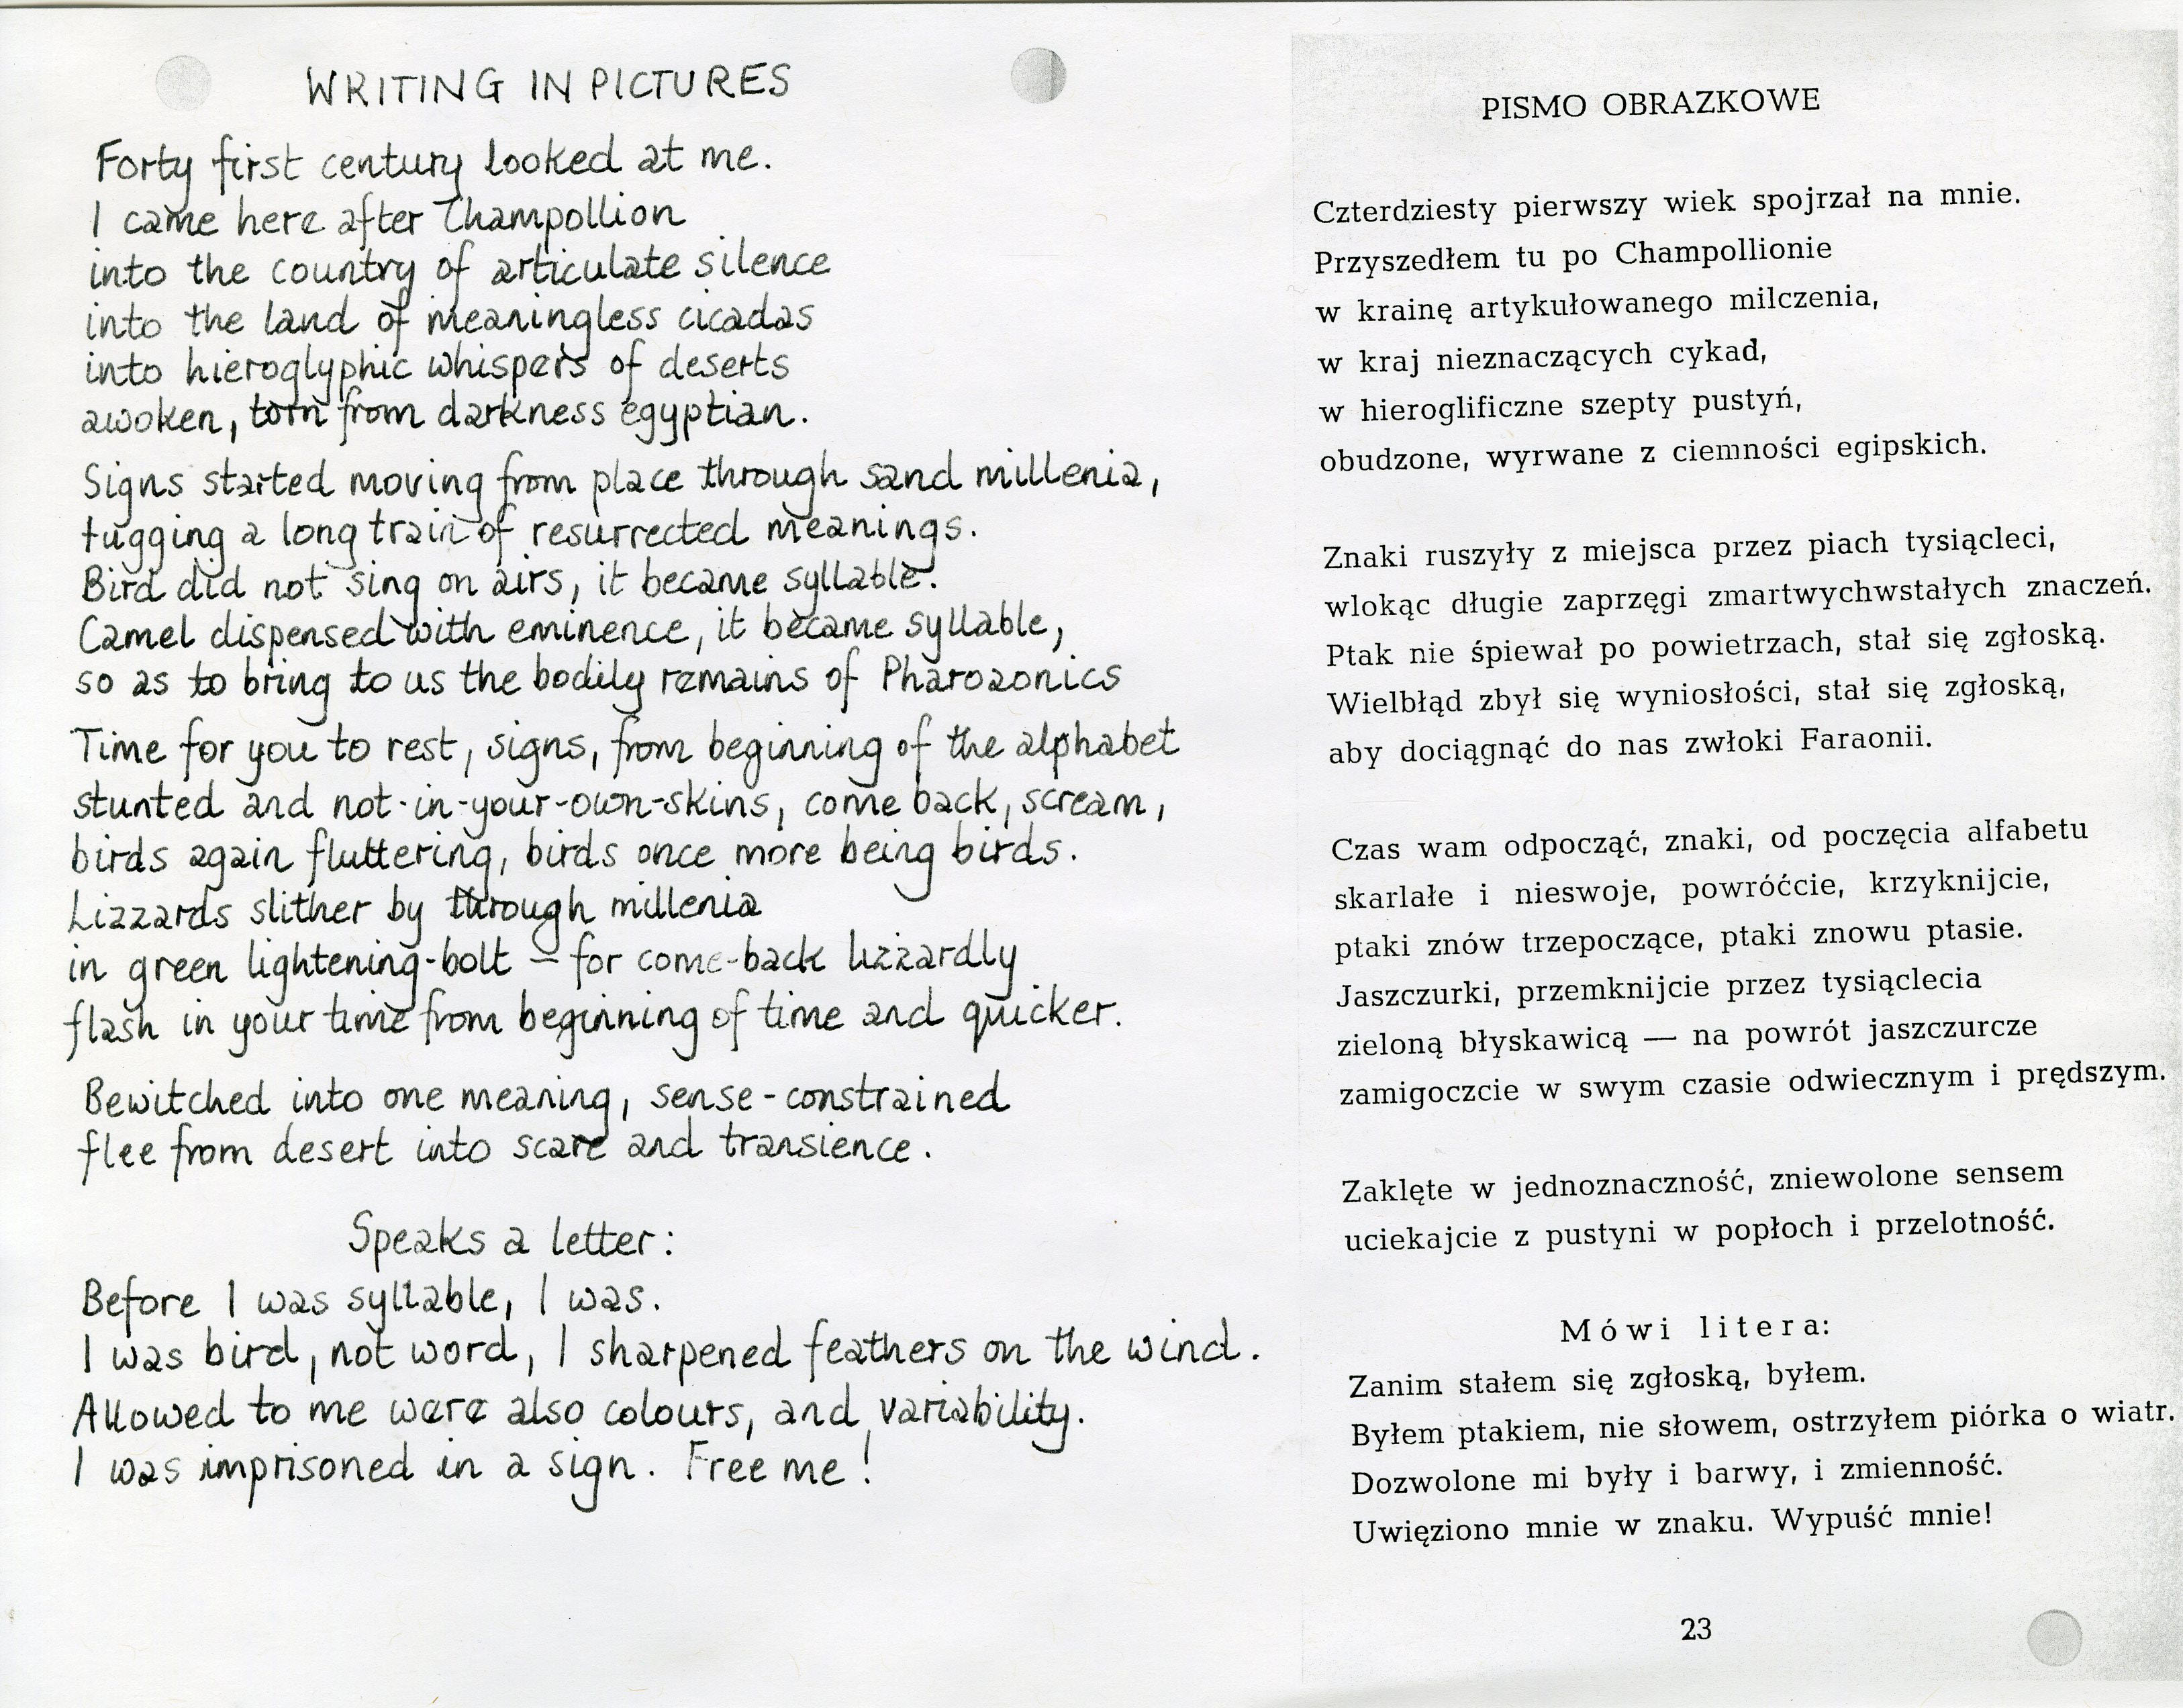 WRITING IN PICTURES
Forty first century looked at me.
I came here after Champollion
into the country of articulate silence
into the land of meaningless cicadas
into hieroglyphic whispers of deserts
awoken, torn from darkness egyptian.
Signs started moving from place through sand millenia,
tugging a long train of resurrected meanings.
Bird did not sing on airs, it became syllable.
Camel dispensed with eminence, it became syllable,
so as to bring to us the bodily remains of Pharoaonics
Time for you to rest, signs, from beginning of the alphabet
stunted and not-in-your-own-skins, come back, scream,
birds again fluttering, birds once more being birds.
Lizzards slither by through millenia
in green lightening-bolt – for come-back lizzardly
flash in your time from beginning of time and quicker.
Bewitched into one meaning, sense-constrained
flee from desert into scare and transience.
Speaks a letter:
Before I was syllable, I was.
I was bird, not word, I sharpened feathers on the wind.
Allowed to me were also colours, and variability.
I was imprisoned in a sign. Free me!
PISMO OBRAZKOWE
Czterdziesty pierwszy wiek spojrzał na mnie.
Przyszedłem tu po Champollionie
w krainę artykułowanego milczenia,
w kraj nieznaczących cykad,
w hieroglificzne szepty pustyń,
obudzone, wyrwane z ciemności egipskich.
Znaki ruszyły z miejsca przez piach tysiącleci,
wlokąc długie zaprzęgi zmartwychwstałych znaczeń.
Ptak nie śpiewał po powietrzach, stał się zgłoską.
Wielbłąd zbył się wyniosłości, stał się zgłoską,
aby dociągnąć do nas zwłoki Faraonii.
Czas wam odpocząć, znaki, od poczęcia alfabetu
skarlałe i nieswoje, powróćcie, krzyknijcie,
ptaki znów trzepoczące, ptaki znowu ptasie.
Jaszczurki, przemknijcie przez tysiąclecia
zieloną błyskawicą — na powrót jaszczurcze
zamigoczcie w swym czasie odwiecznym i prędszym.
Zaklęte w jednoznaczność, zniewolone sensem
uciekajcie z pustyni w popłoch i przelotność.
Mówi litera:
Zanim stałem się zgłoską, byłem.
Byłem ptakiem, nie słowem, ostrzyłem piórka o wiatr.
Dozwolone mi były i barwy, i zmienność.
Uwięziono mnie w znaku. Wypuść mnie!
23